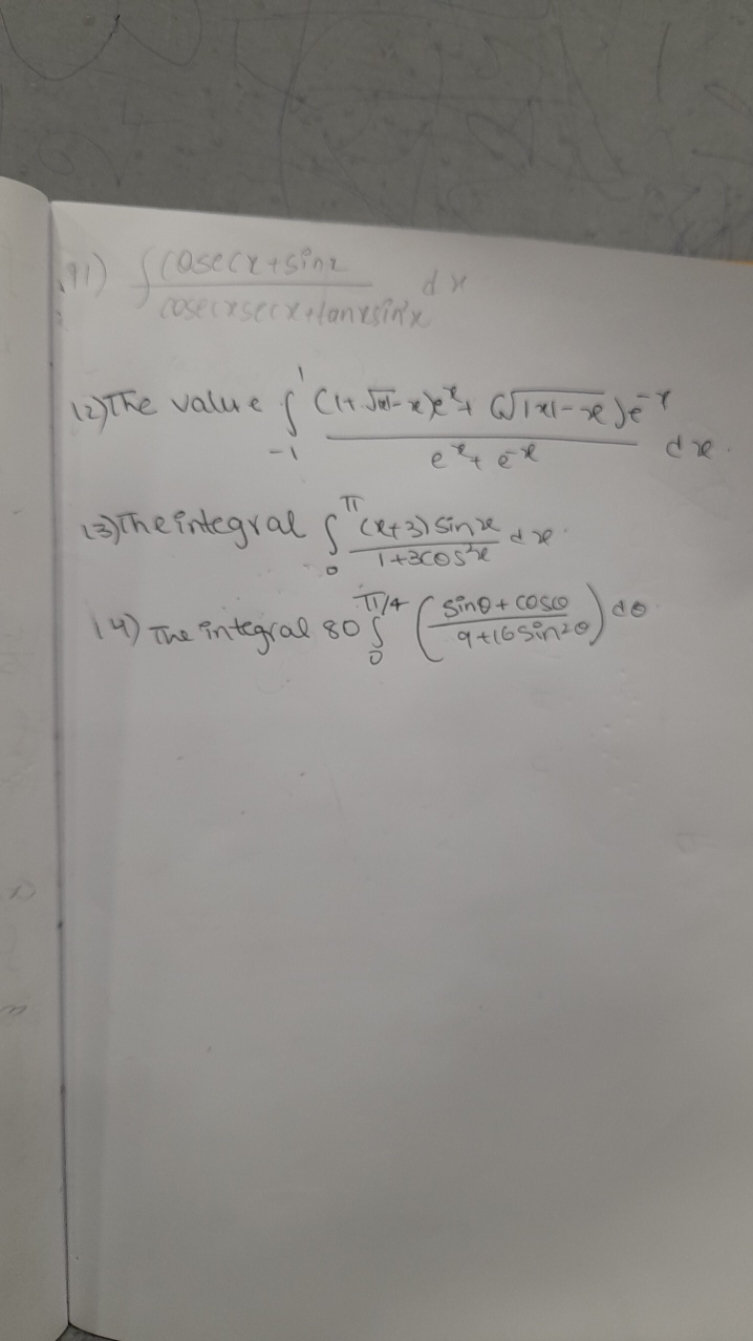 11) ∫ (cosecx+sinx)/(cosecxsecx+tanxsin²x) dx
12) The value ∫₋₁¹ ((1+√|x|-x)eˣ+(√|x|-x)e⁻ˣ)/(eˣ+e⁻ˣ) dx.
13) The integral ∫₀^π ((x+3)sinx)/(1+3cos²x) dx.
14) The integral 80 ∫₀^(π/4) ((sinθ+cosθ)/(9+16sin2θ)) dθ